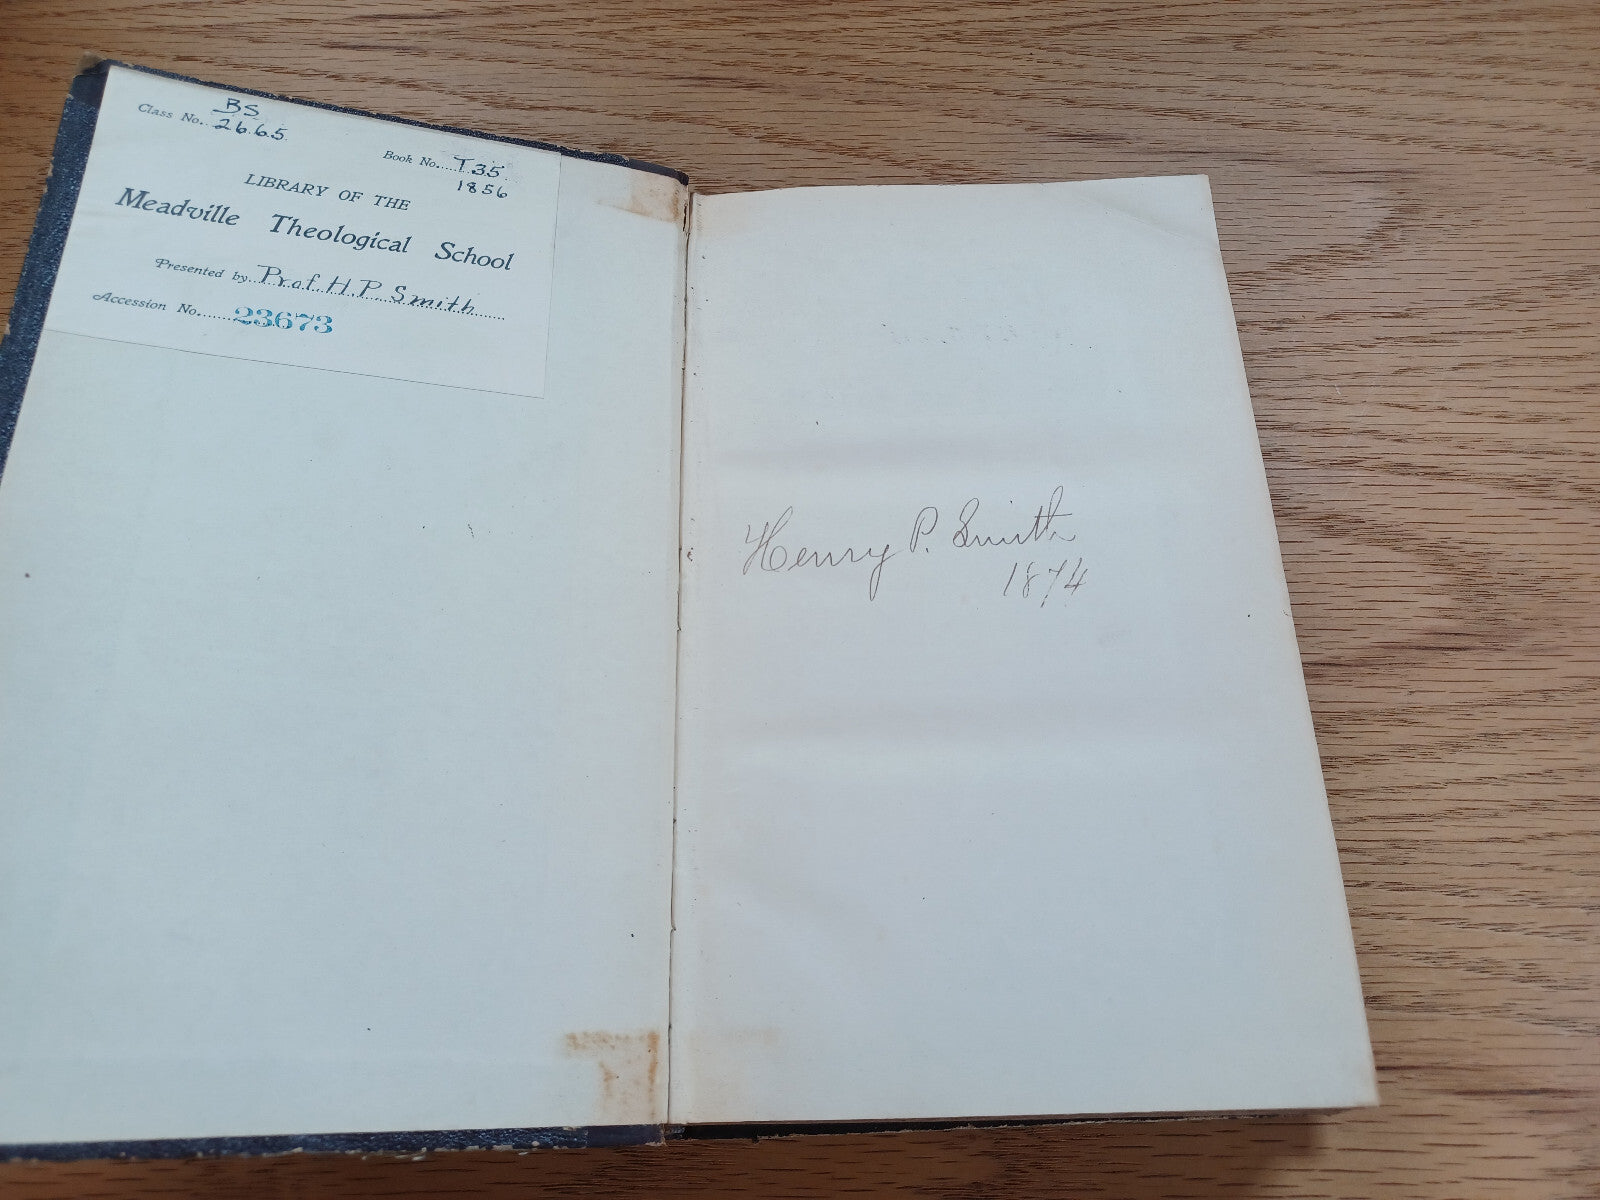 Class No. BS
2665
Book No. T35
1856
LIBRARY OF THE
Meadville Theological School
Presented by Prof. H. P. Smith
Accession No. 23673
Henry P. Smith
1874